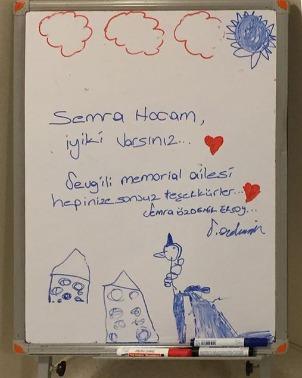 Semra Hocam,
iyiki varsınız...
Sevgili memorial ailesi
hepinize sonsuz teşekkürler...
Semra ÖZDEMİR